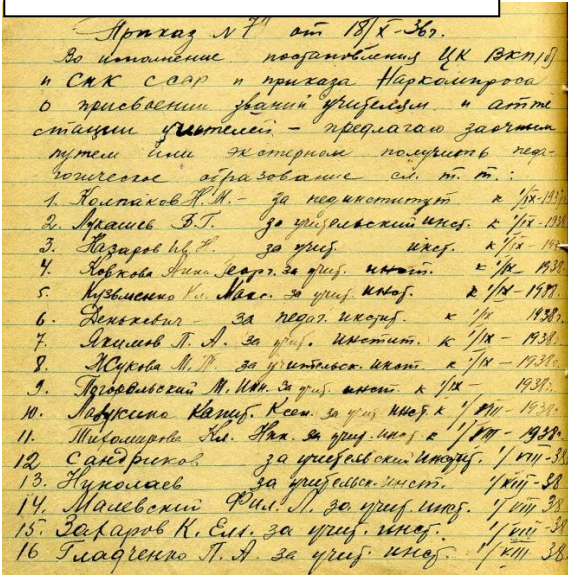 Приказ N 7 от 18/X-36г.
Во исполнение постановления ЦК ВКП(б)
и СНК СССР и приказа Наркомпроса
о присвоении званий учителям и атте
стации учителей – предлагаю заочным
путем или экстерном получить педа-
гогическое образование сл. т. т. :
1. Колпаков Н. М. – за пединститут к 1/IX-1937
2. Лукашев В. Г. за учительский инст. к 1/IX-1938
3. Назаров Ив. Н. за учит. инст. к 1/IX-
4. Ковкова Анна Георг. за учит. инст. к 1/IX-1938.
5. Кузьменко Кл. Макс. за учит. инст. к 1/IX-1938.
6. Денькевич – за педаг. инстит. к 1/IX 1938г.
7. Якимов П. А. за учит. инстит. к 1/IX-1938г.
8. Жукова М. П. за учительск. инст. к 1/IX-1938г.
9. Погорельский М. Инн. за учит. инст. к 1/IX- 1938г.
10. Капит. Ксен. за учит. инст. к 1/VIII-1938г.
11. Тихомирова Кл. Ник. за учит. инст. к 1/VIII-1938г.
12 Сандриков за учительский инстит. 1/VIII-38
13. Николаев за учительск. инст. 1/VIII-38
14. Малевский Фил. Л. за учит. инст. 1/VIII 38
15. Захаров К. Ель. за учит. инст. 1/VIII-38
16 Гладченко П. А. за учит. инст. 1/VIII 38.